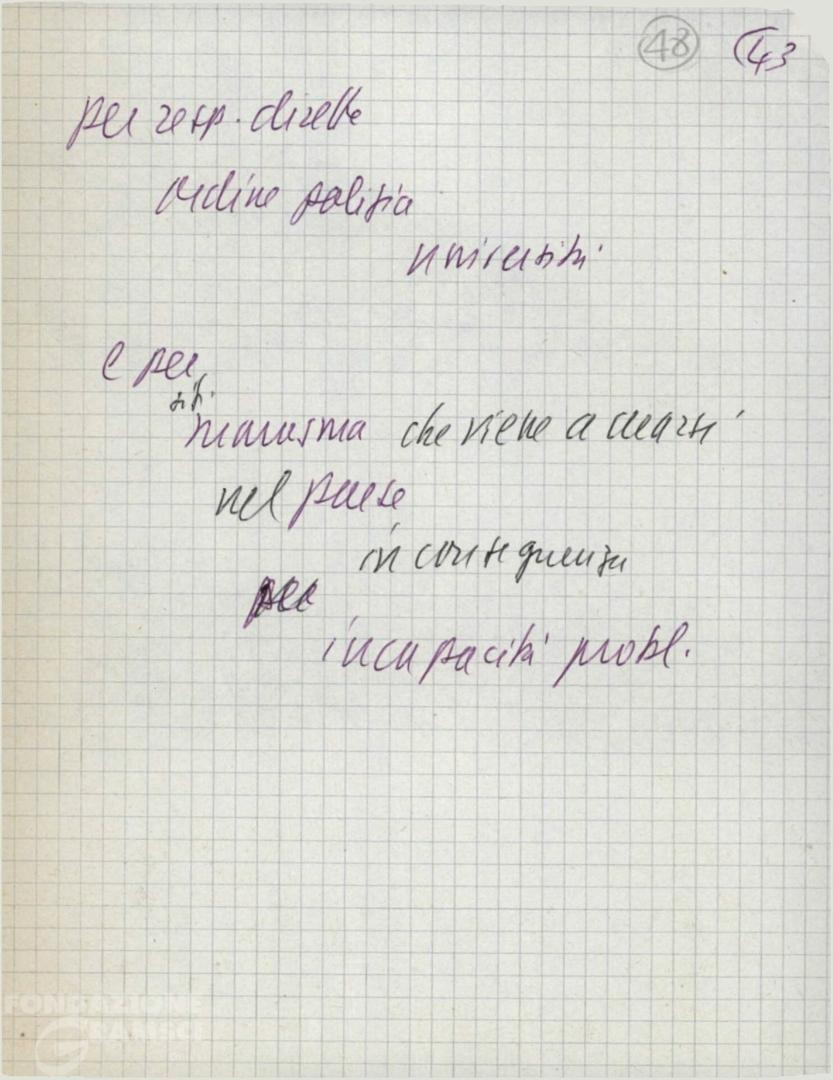 48 43
per resp. dirette
ordine polizia
università
e per
sit.
marasma che viene a crearsi
nel paese
in conseguenza
per
incapacità probl.
FONDAZIONE
GRAMSCI